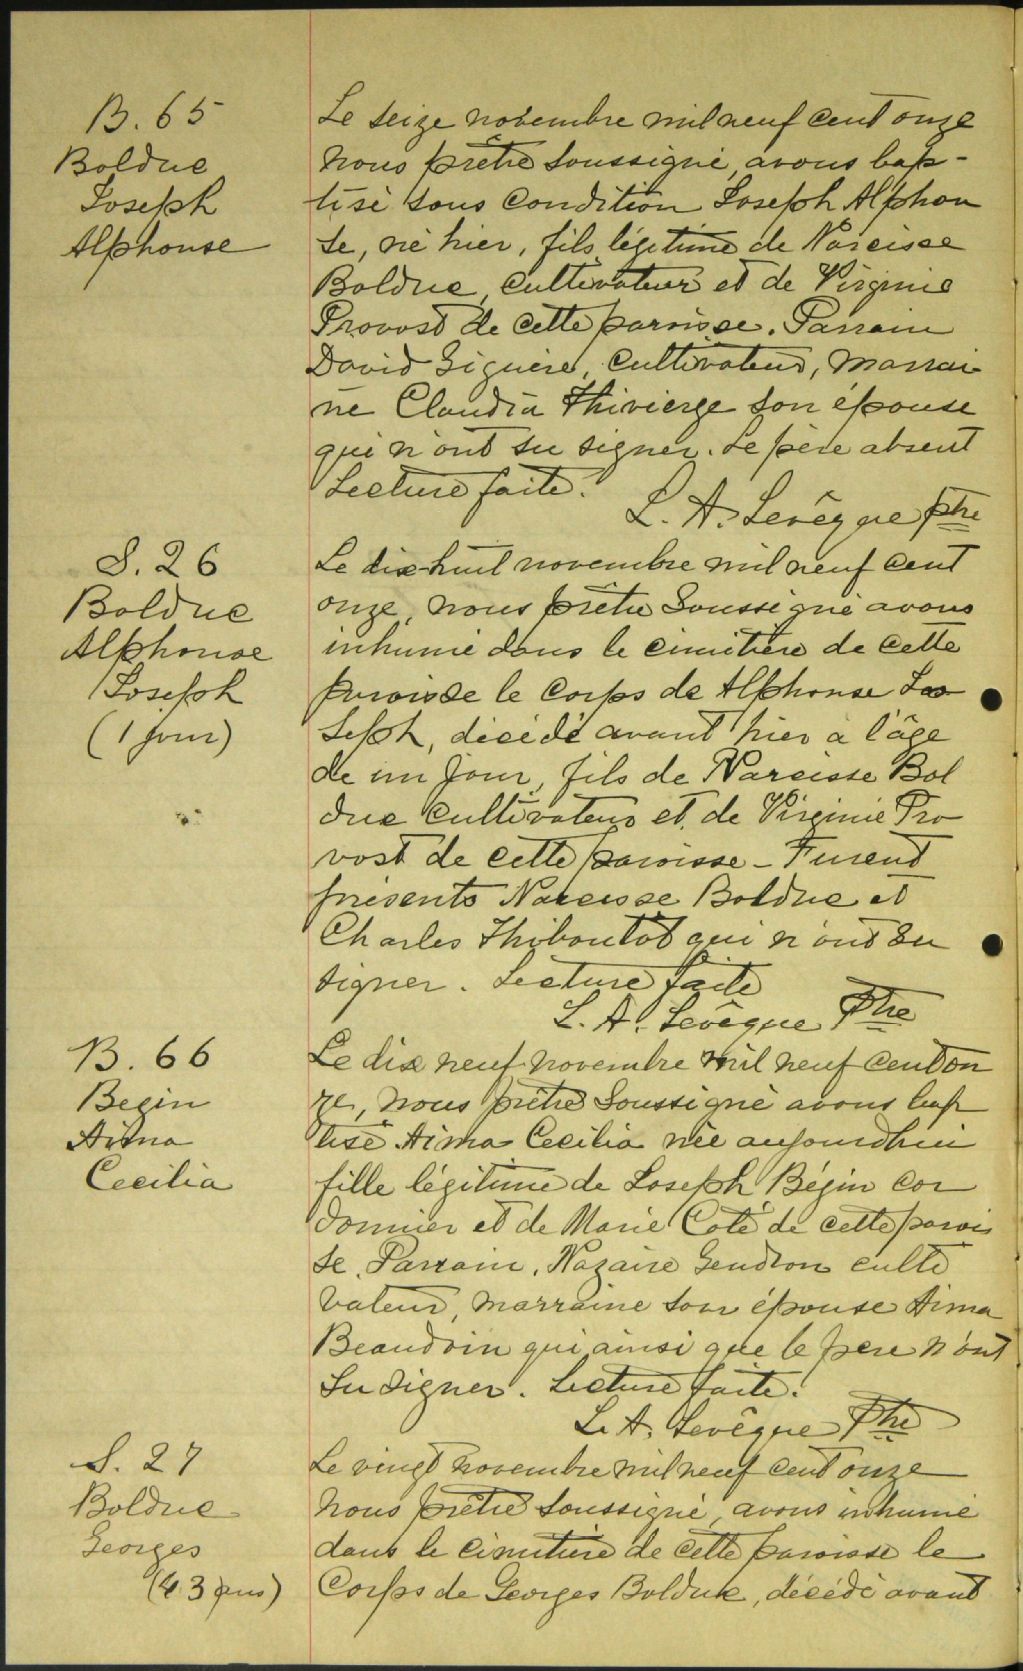 B. 65
Bolduc
Joseph
Alphonse
Le seize novembre mil neuf cent onze
nous prêtre soussigné, avons bap-
tisé sous condition Joseph Alphon
se, né hier, fils légitime de Narcisse
Bolduc, cultivateur et de Virginie
Provost de cette paroisse. Parrain
David Giguère, cultivateur, marrai-
ne Claudia Thivierge son épouse
qui n'ont su signer. Le père absent
Lecture faite.
L. A. Levêque ptre
S. 26
Bolduc
Alphonse
Joseph
(1 jour)
Le dix-huit novembre mil neuf cent
onze, nous prêtre soussigné avons
inhumé dans le cimitière de cette
paroisse le corps de Alphonse Jo
seph, décédé avant hier à l'âge
de un jour, fils de Narcisse Bol
duc cultivateur et de Virginie Pro-
vost de cette paroisse - Furent
présents Narcisse Bolduc et
Charles Thiboutôt qui n'ont su
signer. Lecture faite
L. A. Levêque Ptre
B. 66
Begin
Aima
Cecilia
Le dix neuf novembre mil neuf cent on
ze, nous prêtre soussigné avons bap
tisé Aima Cecilia née aujourdhui
fille légitime de Joseph Bégin cor
donnier et de Marie Coté de cette parois
se. Parrain, Nazaire Gendron culti
vateur, marraine son épouse Aima
Beaudoin qui ainsi que le père n'ont
su signer. Lecture faite.
L. A. Levêque Ptre
S. 27
Bolduc
Georges
(43 ans)
Le vingt novembre mil neuf cent onze
nous prêtre soussigné, avons inhumé
dans le cimitière de cette paroisse le
Corps de Georges Bolduc, décédé avant